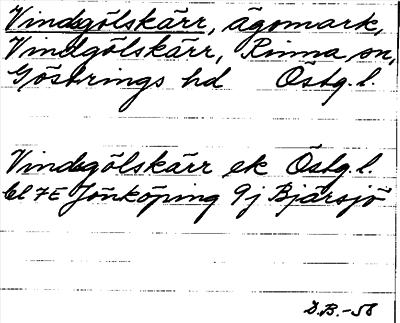 Vindsgölskärr, ägomark,
Vindgölskärr, Rinna sn,
Göstrings hd Östg.l.
Vindsgölskärr ek Östg.l.
bl 7E Jönköping 9j Bjärsjö
D.B.-58